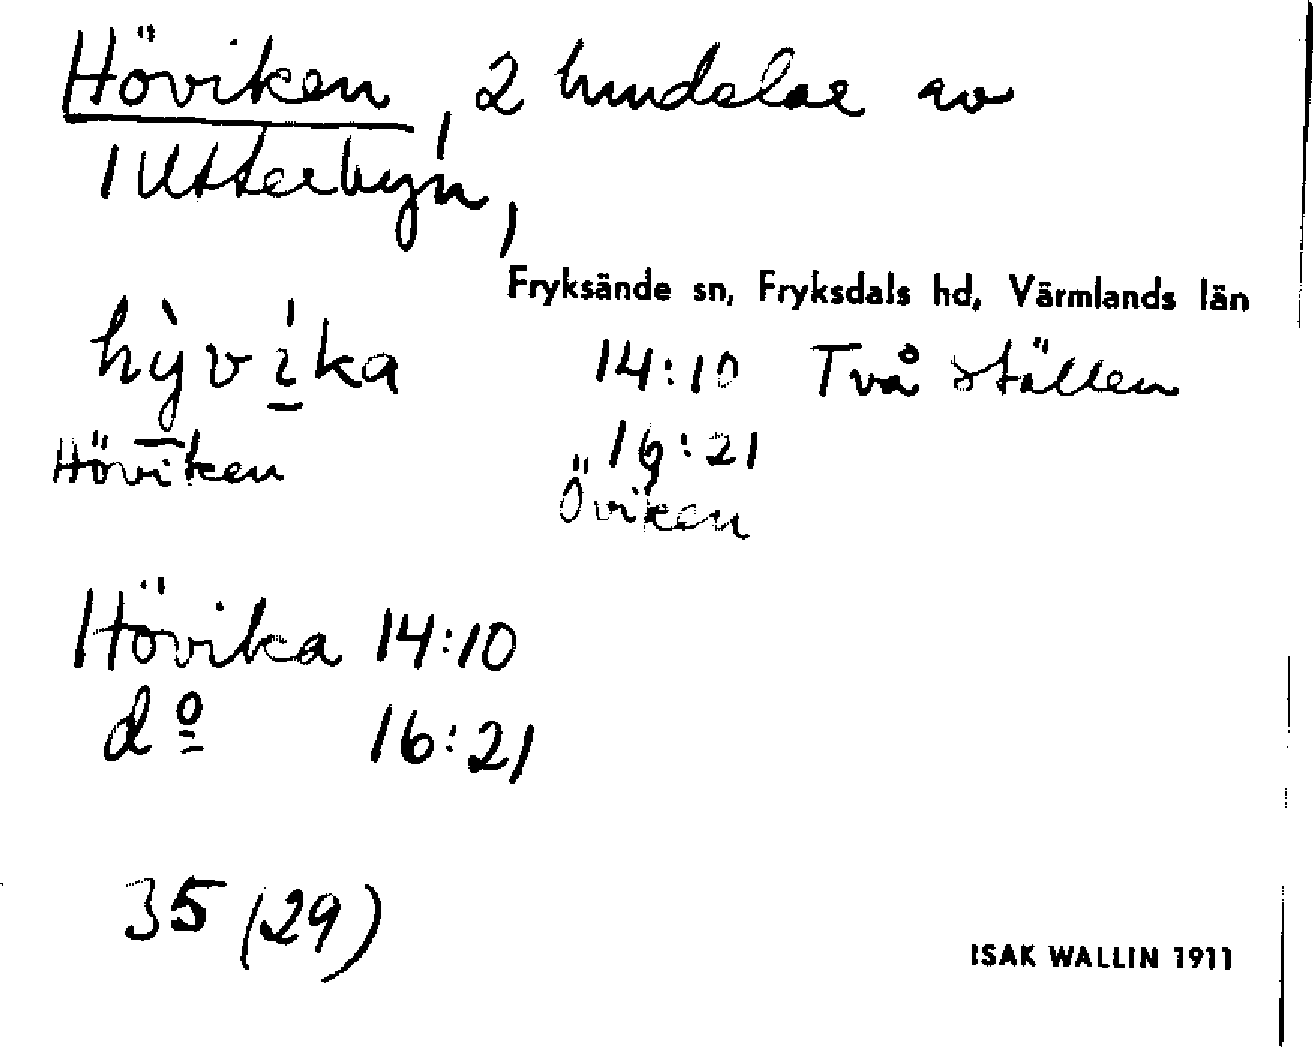 Höviken, 2 hmdelar av
1 Utterbyn,
Fryksände sn, Fryksdals hd, Värmlands län
hỳvíka 14:10 Två ställen
Höviken 16:21
Öviken
Hövika 14:10
dº 16:21
35 (29)
ISAK WALLIN 1911